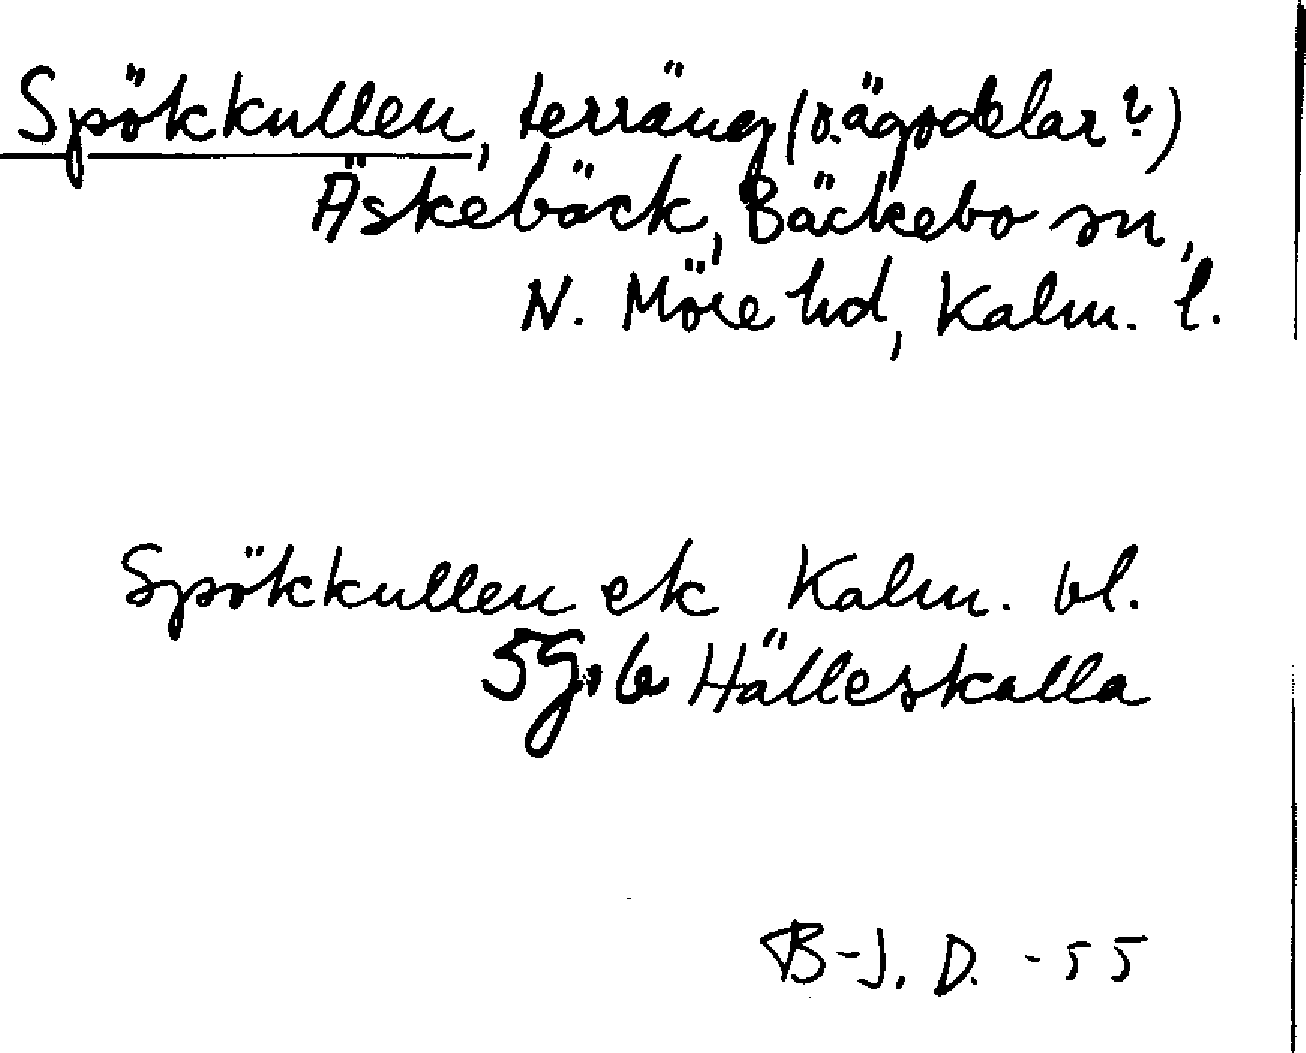 Spökkullen, terräng (o. ägodelar?)
Äskebäck, Bäckebo sn,
N. Möre hd, Kalm. l.
Spökkullen ek Kalm. bl.
5G:6 Hälleskalla
B-J. D. -55